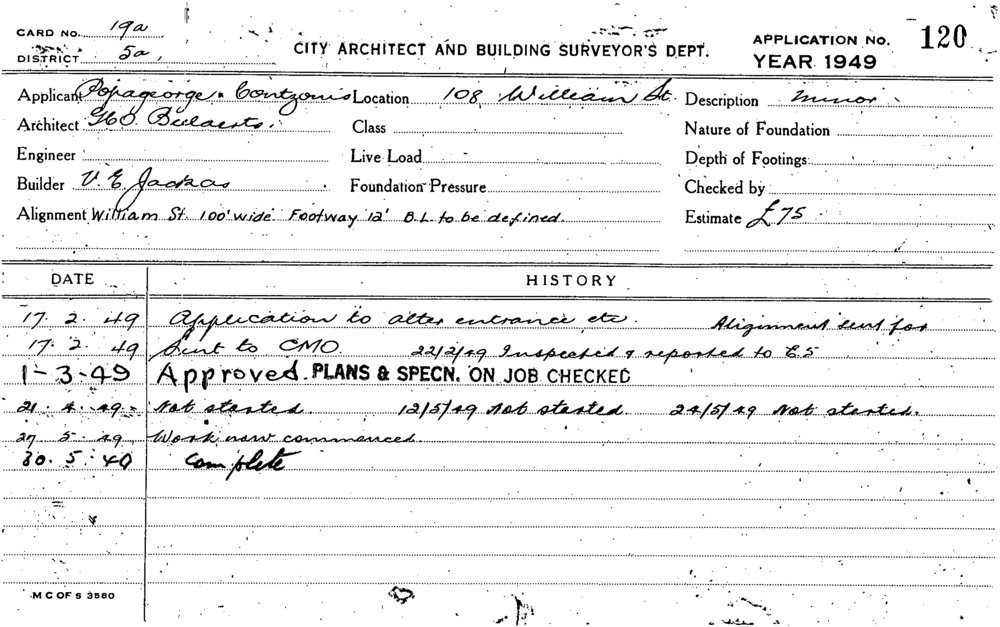 CARD NO. 19a
DISTRICT 5a
CITY ARCHITECT AND BUILDING SURVEYOR'S DEPT.
APPLICATION NO. 120
YEAR 1949
Applicant Popageorge & Contzonis Location 108 William St. Description minor
Architect Class Nature of Foundation
Engineer Live Load Depth of Footings
Builder V. E. Jackas Foundation Pressure Checked by
Alignment William St. 100' wide Footway 12' B.L. to be defined. Estimate £75
DATE HISTORY
17. 2. 49 Application to alter entrance etc. Alignment sent for
17. 2. 49 Sent to CMO. 22/2/49 Inspected & reported to E.S
1-3-49 Approved. PLANS & SPECN. ON JOB CHECKED
21. 4. 49 Not started. 12/5/49 Not started. 24/5/49 Not started.
27 5. 49 Work now commenced.
30. 5. 49 Complete
M C OF S 3580